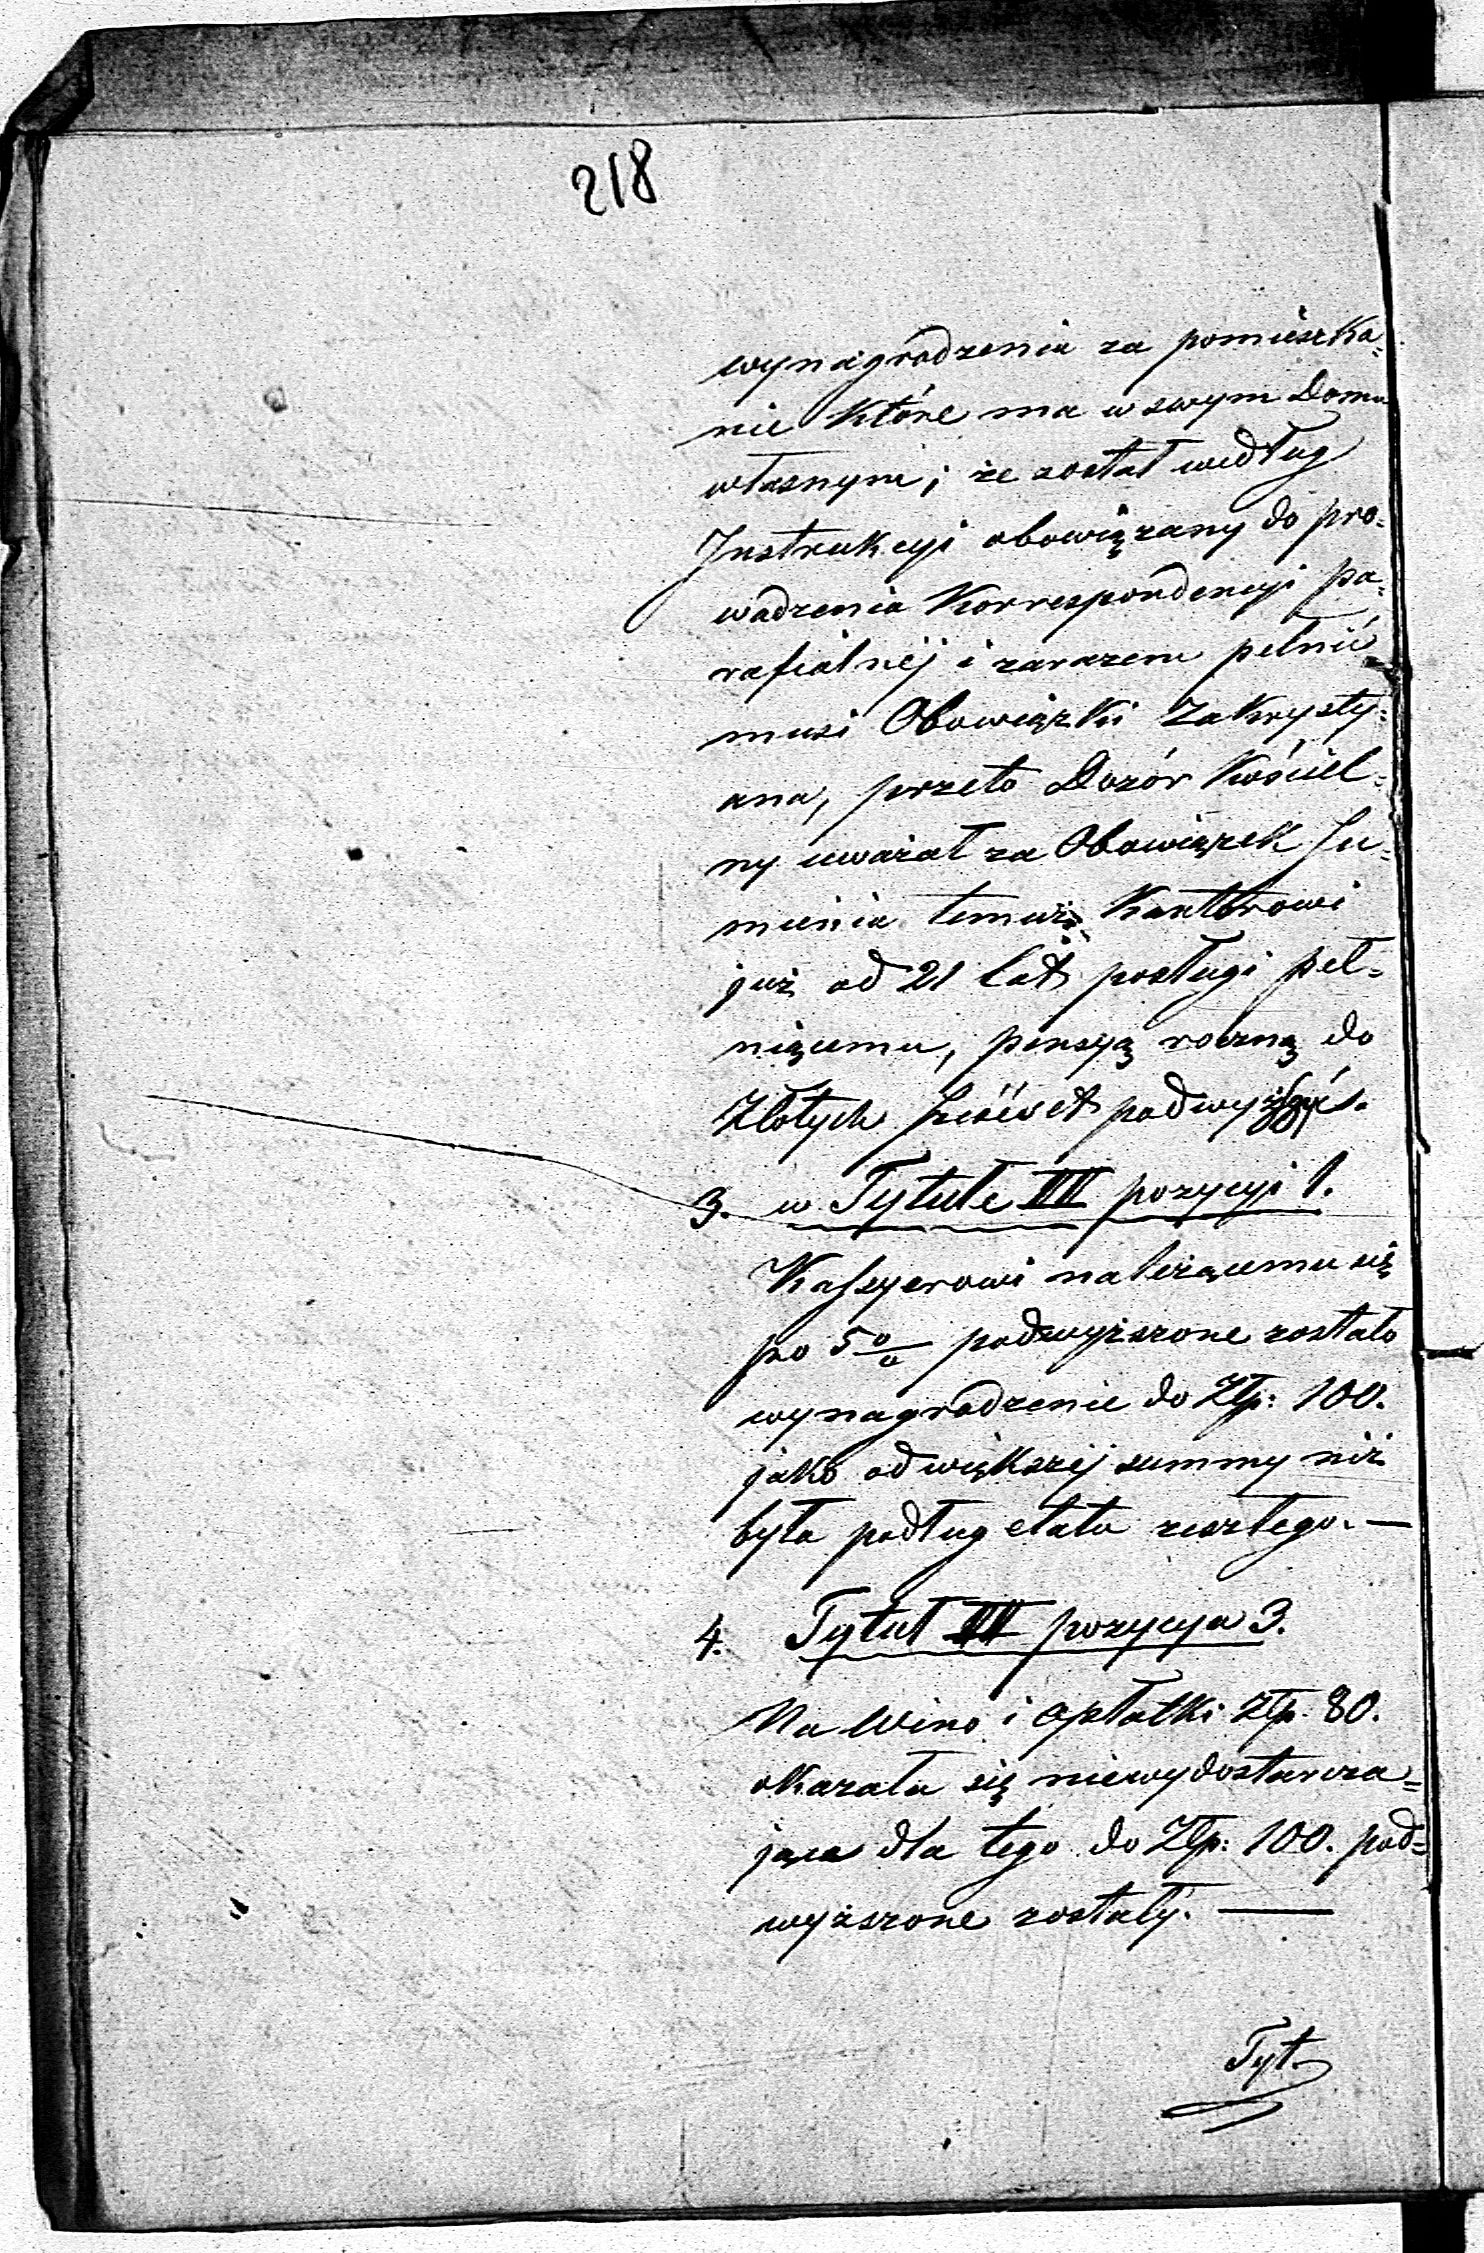 218
wynagrodzenia za pomieszka=
nie które ma w swym Domu
własnym, że został według
Instrukcyi obowiązany do pro=
wadzenia Korrespondencyi pa=
rafialnéj i zarazem pełnić
musi Obowiązki Zakrysty=
ana, przeto Dozór Kościel=
ny uważał za Obowiązek su=
mienia temuż Kantorowi
już od 21 lat posługi peł=
niącemu, pensyą roczną do
Złotych sześćset podwyższyć.
3. w Tytule III pozycyi 1.
Kassyerowi należącemu się
po 5 % podwyższone zostało
wynagrodzenie do Złp: 100.
jako od większéj summy niż
była podług etatu zeszłego. —
4. Tytuł III pozycya 3.
Na Wino i opłatki Złp. 80.
okazała się niewydostarcza=
jąca dla tego do Złp: 100. pod=
wyższone zostały. —
Tyt.